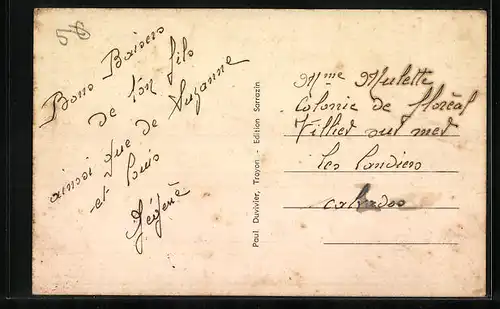 Bons Baisers
de ton fils
ainsi que de Suzanne
et Louis
Gégène
Paul Duvivier, Troyon - Edition Sarrazin
Mme Mulette
Colonie de floréal
Villier sur mer
les
calvados